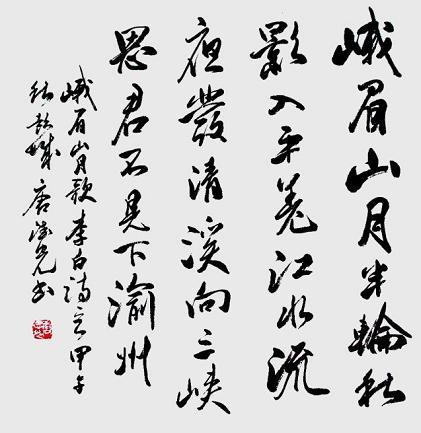 峨眉山月半輪秋
影入平羌江水流
夜發清溪向三峽
思君不見下渝州
峨眉山月歌李白詩甲午
秋城唐書